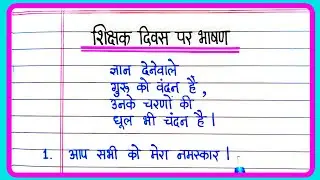 शिक्षक दिवस पर भाषण
ज्ञान देनेवाले
गुरू को वंदन है,
उनके चरणों की
धूल भी चंदन है।
1. आप सभी को मेरा नमस्कार।